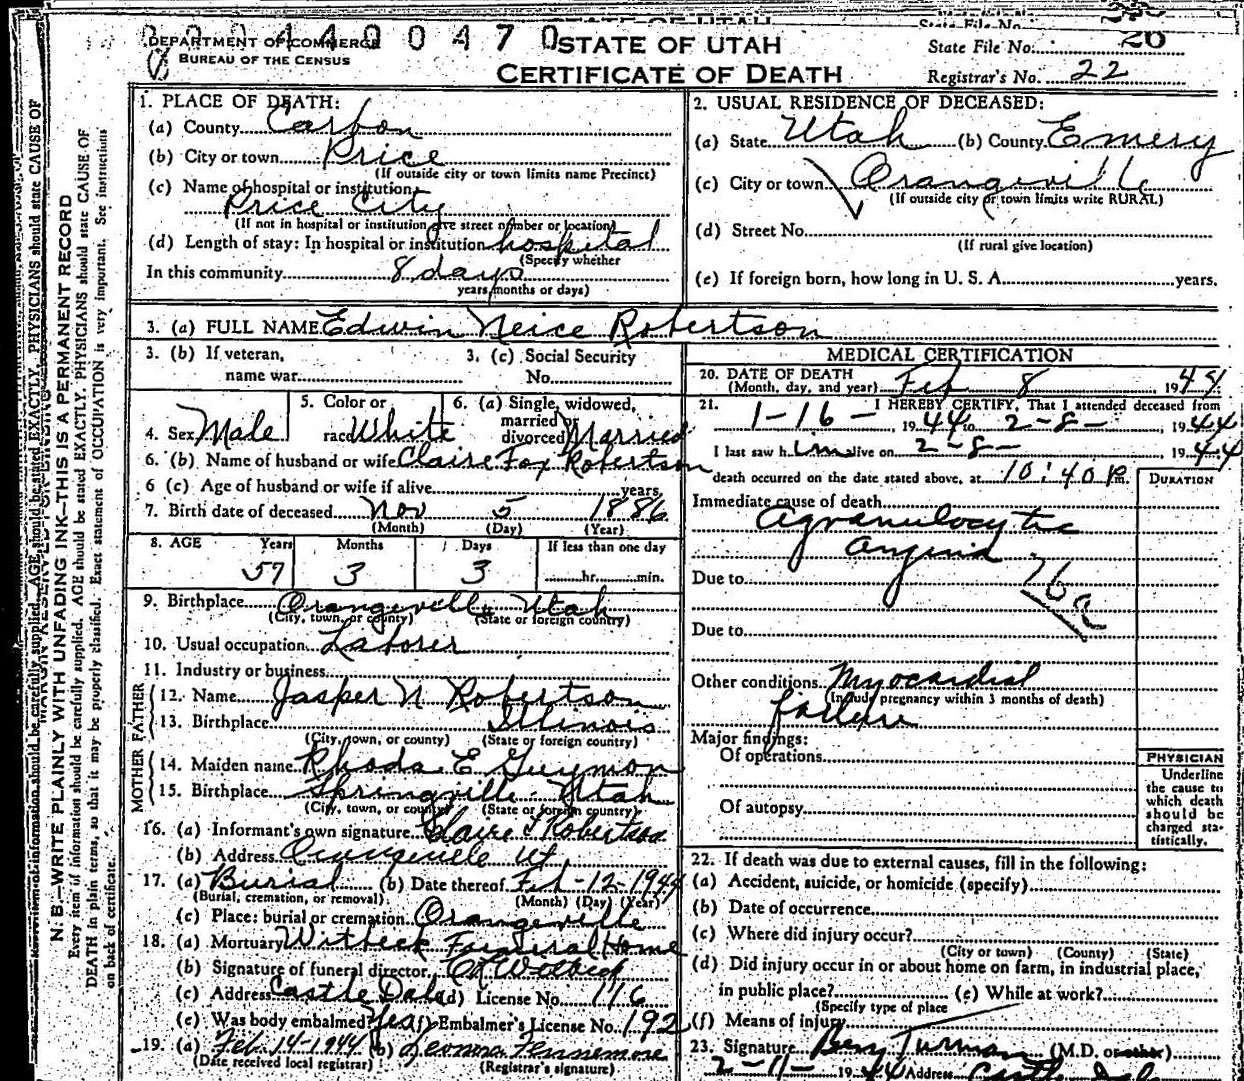 STATE OF UTAH
State File No.
0 0 4 4 0 0 4 7 0
DEPARTMENT OF COMMERCE
BUREAU OF THE CENSUS
STATE OF UTAH
CERTIFICATE OF DEATH
State File No. 26
Registrar's No. 22
N. B.—WRITE PLAINLY WITH UNFADING INK—THIS IS A PERMANENT RECORD
Every item of information should be carefully supplied. AGE should be stated EXACTLY. PHYSICIANS should state CAUSE OF
DEATH in plain terms, so that it may be properly classified. Exact statement of OCCUPATION is very important. See instructions
on back of certificate.
1. PLACE OF DEATH:
(a) County Carbon
(b) City or town Price
(If outside city or town limits name Precinct)
(c) Name of hospital or institution
Price City
(If not in hospital or institution give street number or location)
(d) Length of stay: In hospital or institution hospital
(Specify whether
In this community 8 days
years, months or days)
2. USUAL RESIDENCE OF DECEASED:
(a) State Utah (b) County Emery
(c) City or town Orangeville
(If outside city or town limits write RURAL)
(d) Street No.
(If rural give location)
(e) If foreign born, how long in U. S. A. years.
3. (a) FULL NAME Edwin Neice Robertson
3. (b) If veteran,
name war
3. (c) Social Security
No.
4. Sex Male
5. Color or
race White
6. (a) Single, widowed,
married or
divorced Married
6. (b) Name of husband or wife Claire Fox Robertson
6 (c) Age of husband or wife if alive years
7. Birth date of deceased Nov 5 1886
(Month) (Day) (Year)
8. AGE Years Months Days If less than one day
57 3 3 hr. min.
9. Birthplace Orangeville Utah
(City, town, or county) (State or foreign country)
10. Usual occupation Laborer
11. Industry or business
FATHER
12. Name Jasper N Robertson
13. Birthplace Illinois
(City, town, or county) (State or foreign country)
MOTHER
14. Maiden name Rhoda E Guymon
15. Birthplace Springville Utah
(City, town, or county) (State or foreign country)
16. (a) Informant's own signature Claire F Robertson
(b) Address Orangeville Ut.
17. (a) Burial (b) Date thereof Feb-12-1944
(Burial, cremation, or removal) (Month) (Day) (Year)
(c) Place: burial or cremation Orangeville
18. (a) Mortuary Witbeck Funeral Home
(b) Signature of funeral director Witbeck
(c) Address Castle Dale (d) License No. 116
(e) Was body embalmed? Yes (f) Embalmer's License No. 192
19. (a) Feb. 14-1944 (b) Leonora Fennemore
(Date received local registrar) (Registrar's signature)
MEDICAL CERTIFICATION
20. DATE OF DEATH
(Month, day, and year) Feb 8 1944
21. I HEREBY CERTIFY, That I attended deceased from
1-16- , 1944 to 2-8- , 1944
I last saw him alive on 2-8- , 1944
death occurred on the date stated above, at 10:40 P m.
DURATION
Immediate cause of death
Agranulocytic
angina
Due to
76a
Due to
Other conditions Myocardial
(Include pregnancy within 3 months of death)
failure
Major findings:
Of operations
Of autopsy
PHYSICIAN
Underline
the cause to
which death
should be
charged sta-
tistically.
22. If death was due to external causes, fill in the following:
(a) Accident, suicide, or homicide (specify)
(b) Date of occurrence
(c) Where did injury occur?
(City or town) (County) (State)
(d) Did injury occur in or about home on farm, in industrial place,
in public place? (e) While at work?
(Specify type of place
(f) Means of injury
23. Signature Turman (M.D. or other)
2-11- 1944 Address Castle Dale